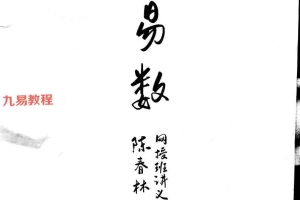 易数
网授班讲义
陈春林
九易教程